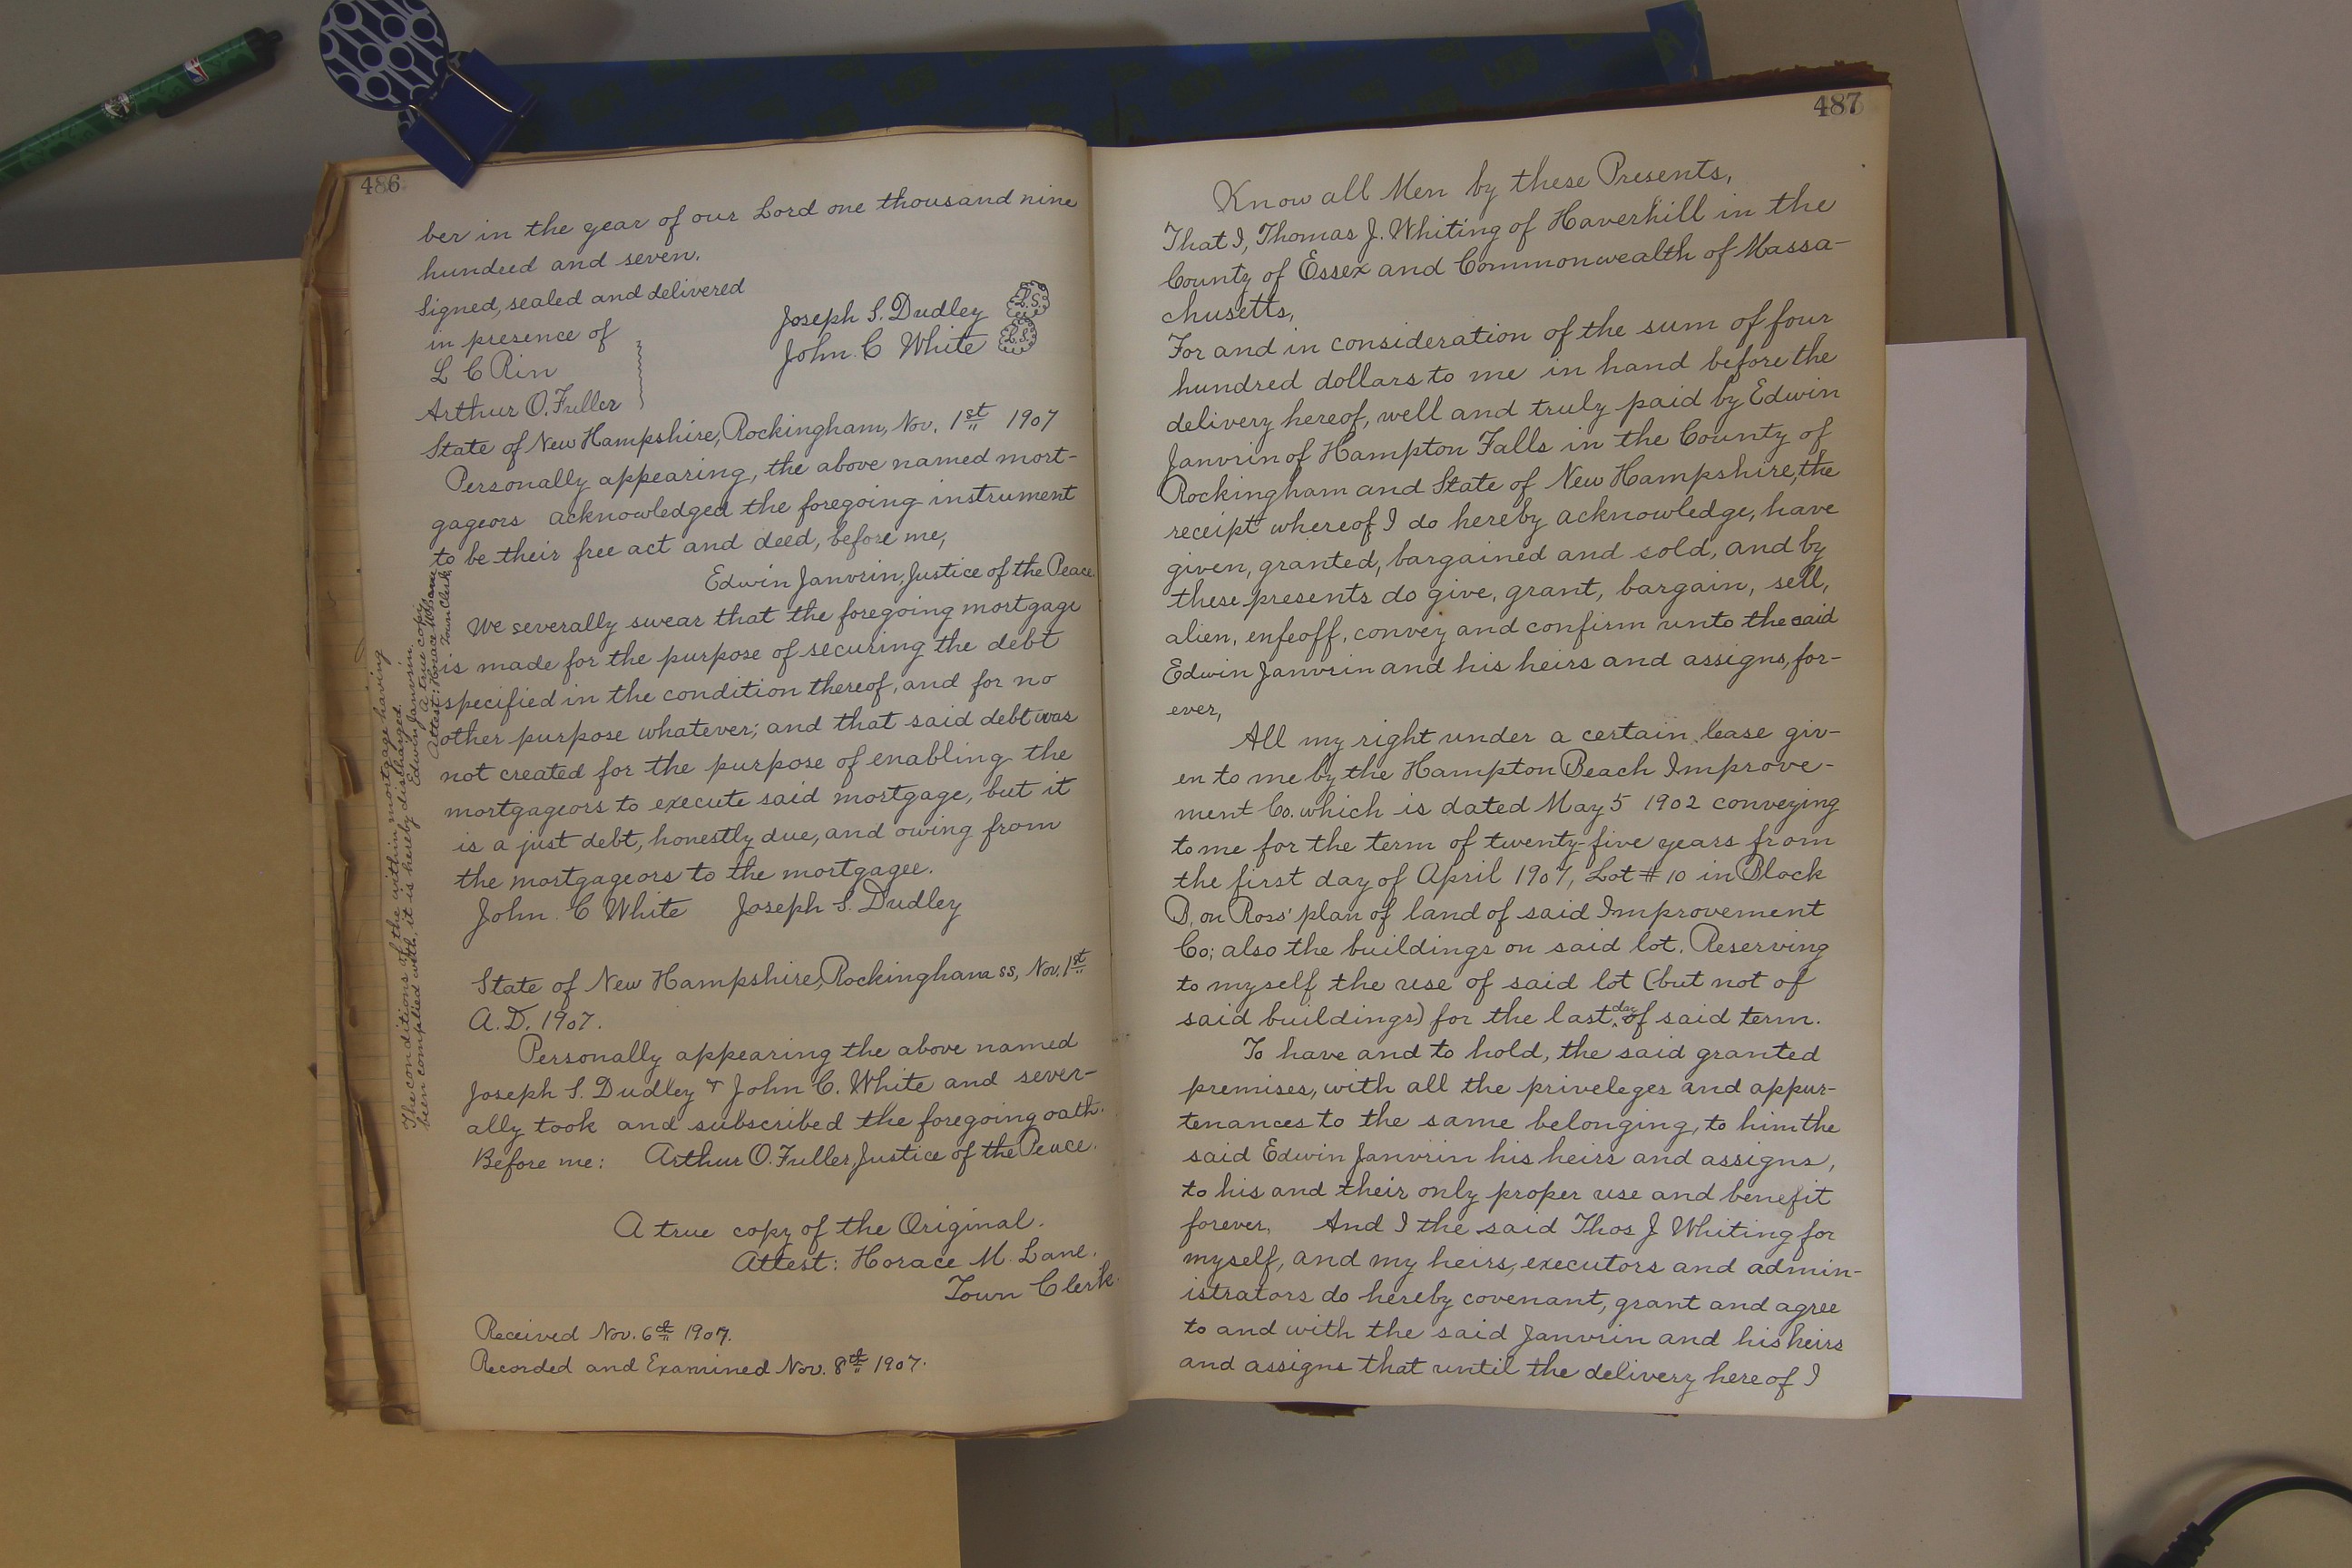 486
ber in the year of our Lord one thousand nine
hundred and seven.
Signed, sealed and delivered
in presence of
L C Rin
Arthur O. Fuller
Joseph S. Dudley L.S.
John C White L.S.
State of New Hampshire, Rockingham, Nov. 1st 1907
Personally appearing, the above named mort-
gageors acknowledged the foregoing instrument
to be their free act and deed, before me,
Edwin Janvrin, Justice of the Peace.
We severally swear that the foregoing mortgage
is made for the purpose of securing the debt
specified in the condition thereof, and for no
other purpose whatever; and that said debt was
not created for the purpose of enabling the
mortgageors to execute said mortgage, but it
is a just debt, honestly due, and owing from
the mortgageors to the mortgagee.
John C White Joseph S. Dudley
State of New Hampshire, Rockingham ss, Nov. 1st
A.D. 1907.
Personally appearing the above named
Joseph S. Dudley & John C. White and sever-
ally took and subscribed the foregoing oath.
Before me: Arthur O. Fuller, Justice of the Peace.
A true copy of the Original.
Attest: Horace M. Lane.
Town Clerk.
Received Nov. 6th 1907.
Recorded and Examined Nov. 8th 1907.
The conditions of the within mortgage having
been complied with, it is hereby discharged.
Edwin Janvrin.
A true copy
Attest: Horace M Lane
Town Clerk
487
Know all Men by these Presents,
That I, Thomas J. Whiting of Haverhill in the
County of Essex and Commonwealth of Massa-
chusetts,
For and in consideration of the sum of four
hundred dollars to me in hand before the
delivery hereof, well and truly paid by Edwin
Janvrin of Hampton Falls in the County of
Rockingham and State of New Hampshire, the
receipt whereof I do hereby acknowledge, have
given, granted, bargained and sold, and by
these presents do give, grant, bargain, sell,
alien, enfeoff, convey and confirm unto the said
Edwin Janvrin and his heirs and assigns, for-
ever,
All my right under a certain lease giv-
en to me by the Hampton Beach Improve-
ment Co. which is dated May 5 1902 conveying
to me for the term of twenty-five years from
the first day of April 1907, Lot # 10 in Block
D, on Ross' plan of land of said Improvement
Co; also the buildings on said lot. Reserving
to myself the use of said lot (but not of
said buildings) for the last day of said term.
To have and to hold, the said granted
premises, with all the priveleges and appur-
tenances to the same belonging, to him the
said Edwin Janvrin his heirs and assigns,
to his and their only proper use and benefit
forever. And I the said Thos J Whiting for
myself, and my heirs, executors and admin-
istrators do hereby covenant, grant and agree
to and with the said Janvrin and his heirs
and assigns that until the delivery hereof I